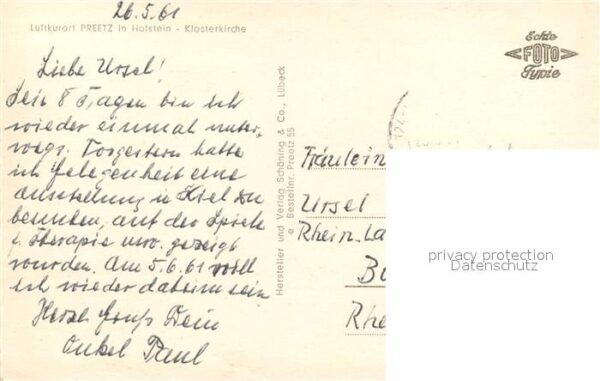 26.5.61
Luftkurort PREETZ in Holstein - Klosterkirche
Echte
FOTO
Typie
Liebe Ursel!
Seit 8 Tagen bin ich
wieder einmal unter,
wegs. Vorgestern hatte
ich Gelegenheit eine
Ausstellung in Kiel zu
besuchen, auf der Spiele
f. Therapie usw. gezeigt
wurden. Am 5.6.61 will
ich wieder daheim sein
Herzl Gruß Dein
Onkel Paul
Hersteller und Verlag Schöning & Co., Lübeck
Bestellnr. Preetz 55
Fräulein
Ursel
Rhein. La
Bu
Rhe
privacy protection
Datenschutz